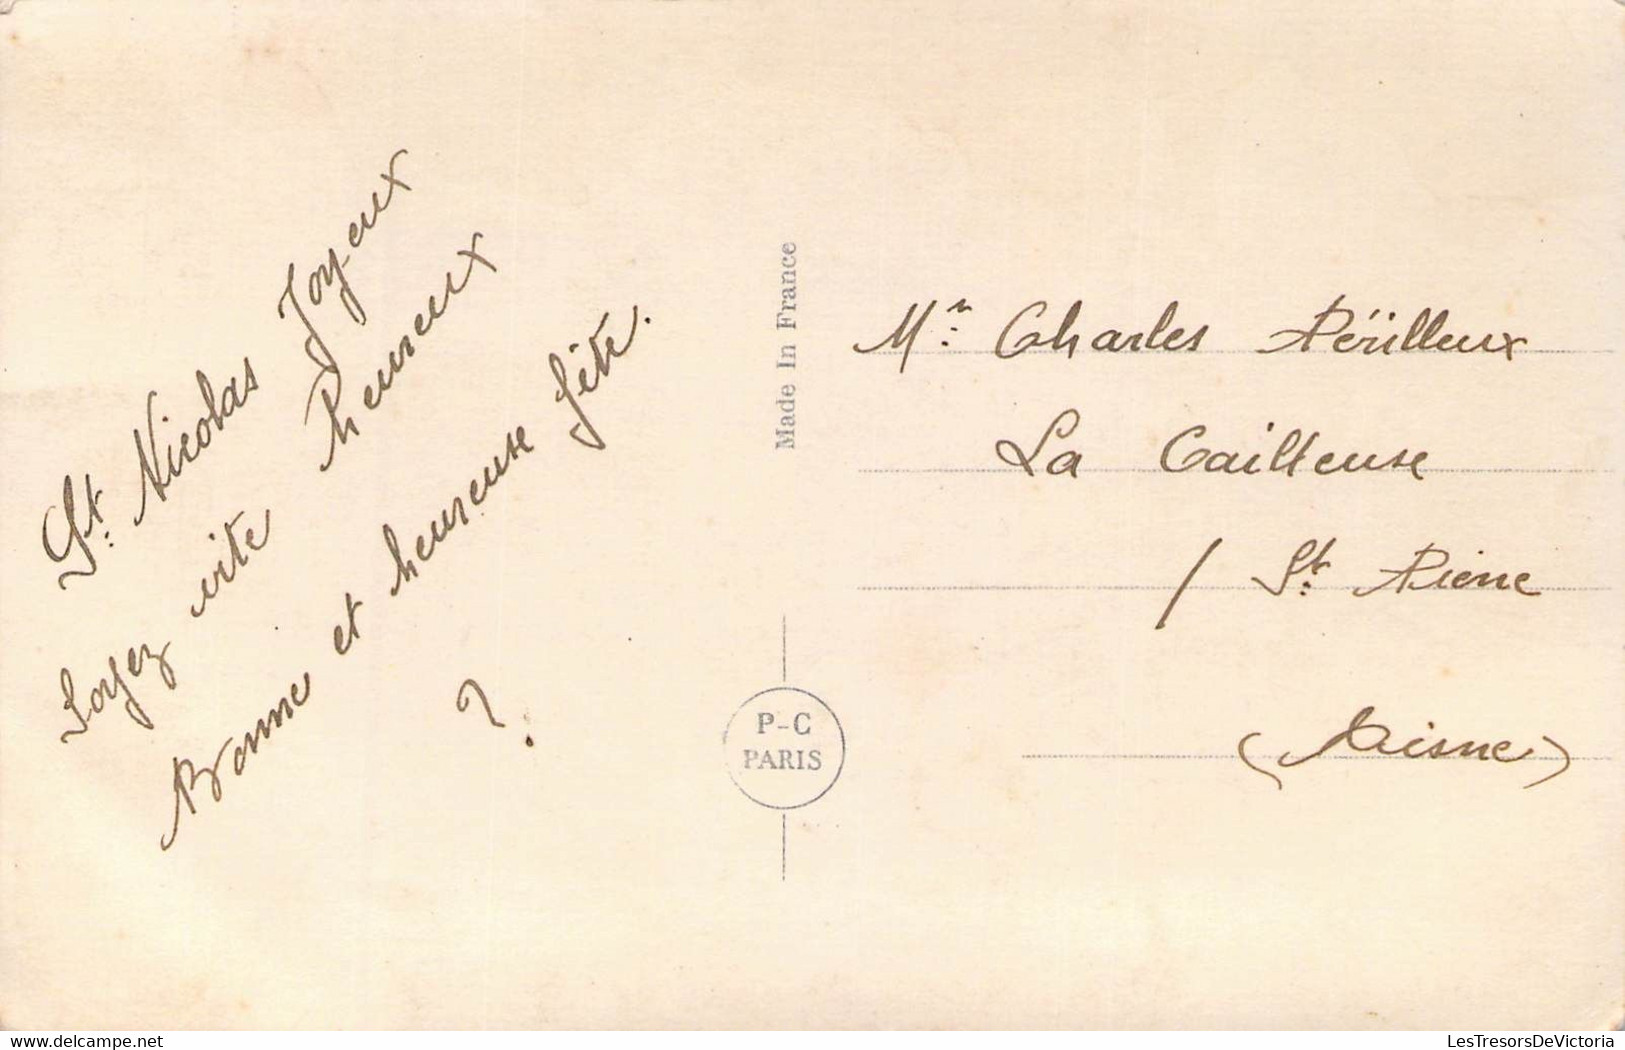 St. Nicolas Joyeux
Soyez vite heureux
Bonne et heureuse fête.
?
Made In France
P-C
PARIS
Mr. Charles Périlleux
La Cailleuse
/ St. Pierre
(Aisne)
LesTresorsDeVictoria